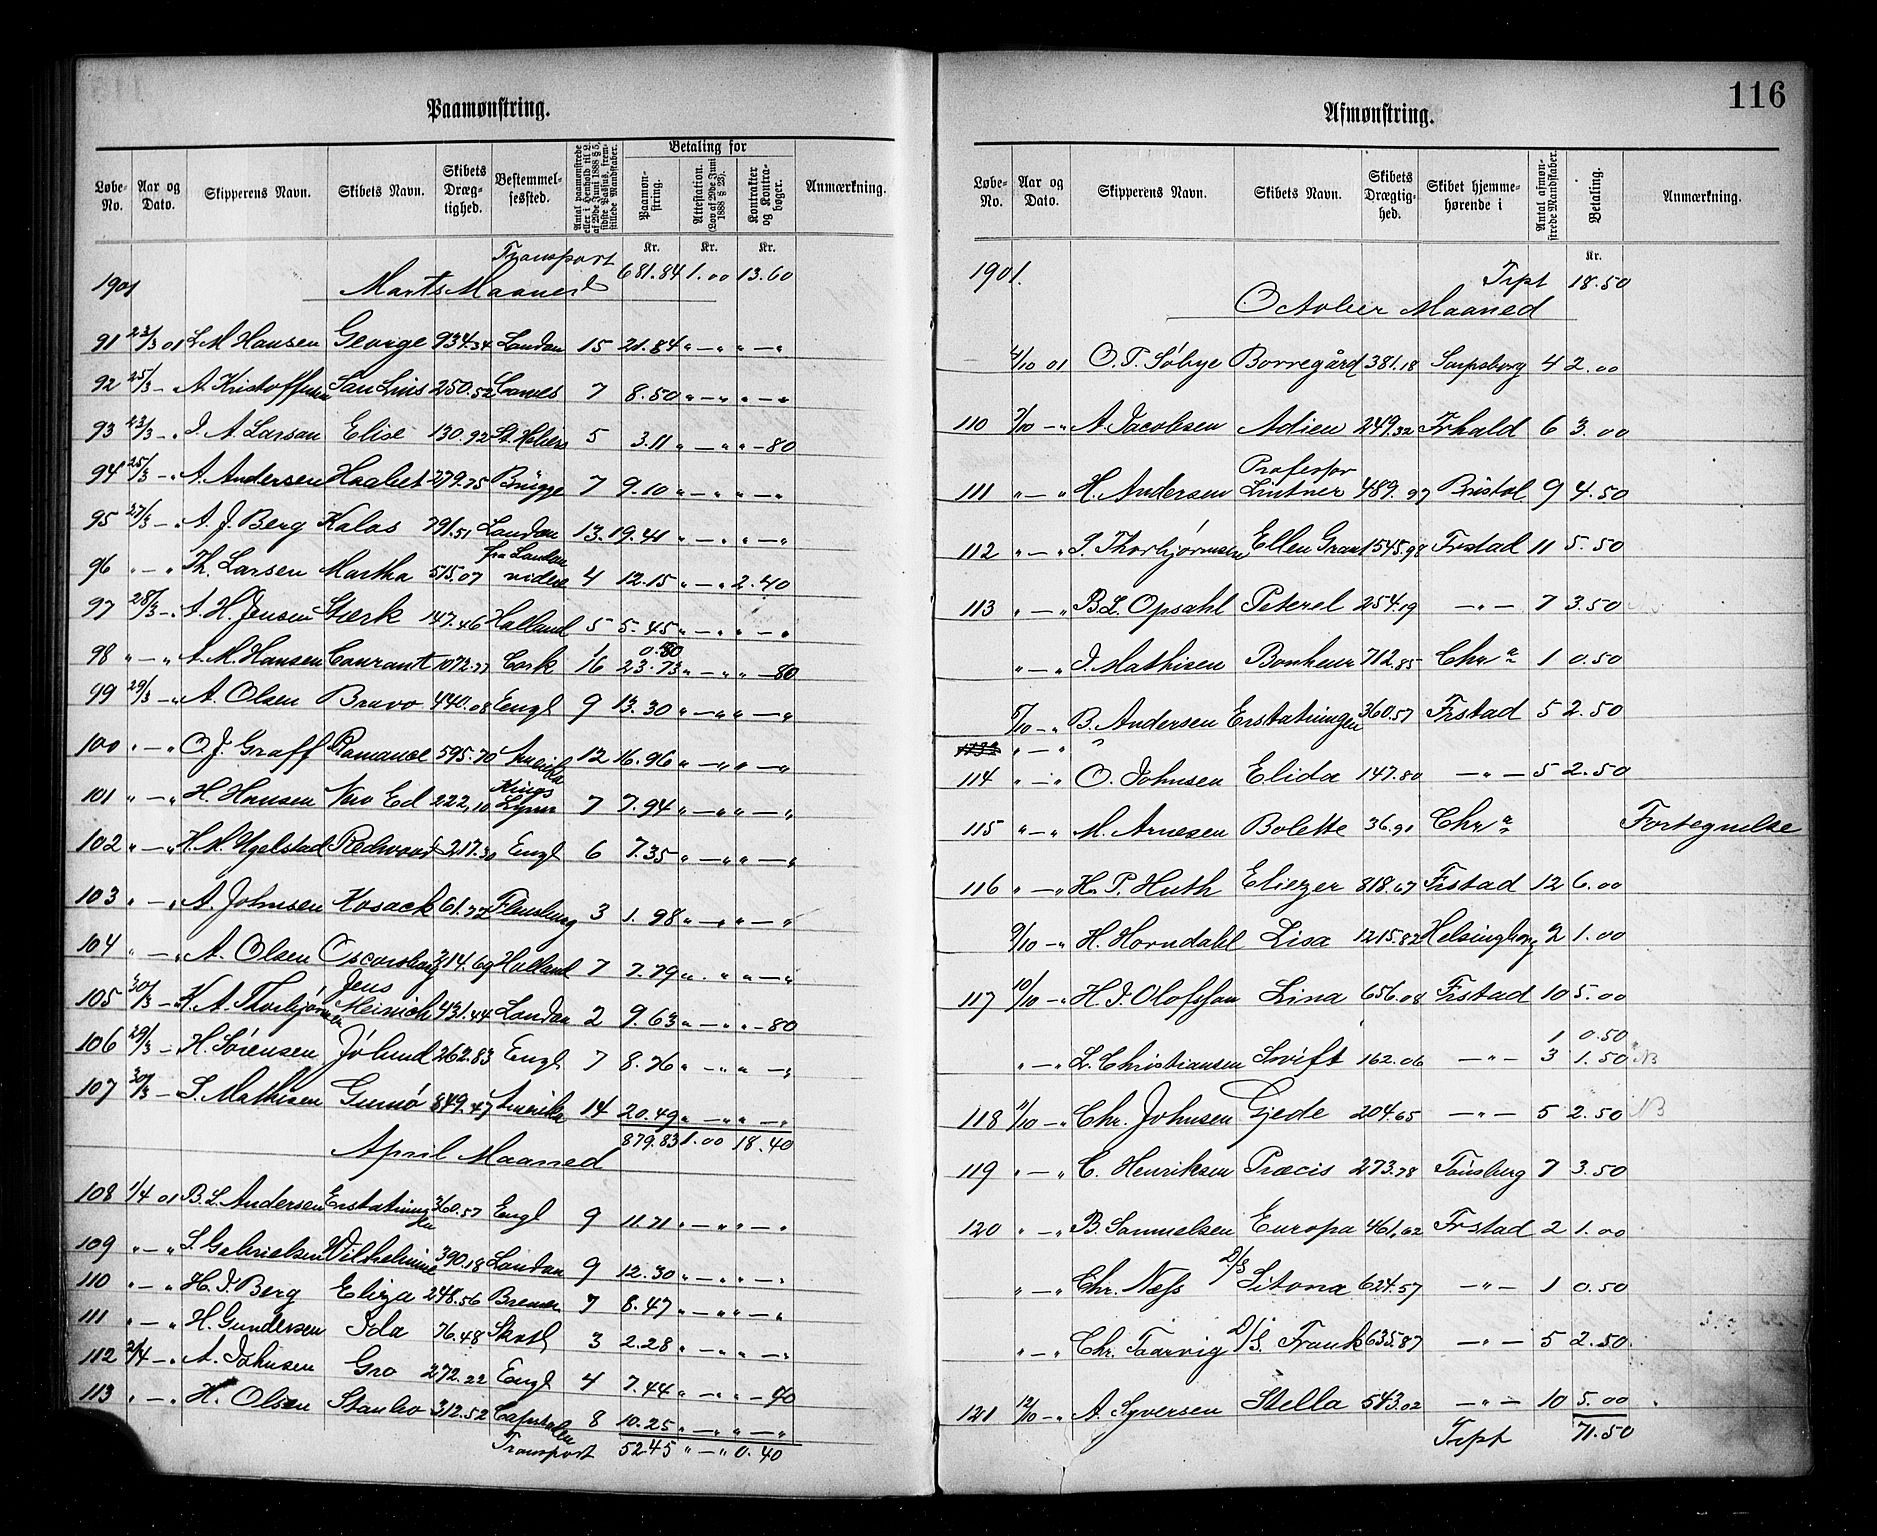 116
Paamønstring.
Løbe-No. Aar og Dato. Skipperens Navn. Skibets Navn. Skibets Dræg-tighed. Bestemmel-sessted. Antal paamønstrede eller i Henhold til L. af 29de Juni 1888 § 5, sidste Passus, frem-stillede Mandskaber. Betaling for Paamøn-string. Attestation. (Lov af 29de Juni 1888 § 23). Kontrakter og Kontra-bøger. Anmærkning.
Kr. Kr. Kr.
Transport 681.84 1.00 13.60
1901 Marts Maaned
91 23/3 01 L. M. Hansen George 934.34 London 15 21.84 " — " " — "
92 25/3 — " A. Kristoffersen San Luis 250.52 Cowes 7 8.50 " — " " — "
93 23/3 — " I. A. Larson Elise 130.92 St. Heliers 5 3.11 " — " " — 80
94 25/3 — " A. Andersen Haabet 279.75 Brügge 7 9.10 " — " " — "
95 27/3 — " A. J. Berg Kalos 791.51 London 13 19.41 " — " " — "
96 " — " Th. Larsen Martha 515.07 fra London videre 4 12.15 " — " 2.40
97 28/3 — " A. H. Jensen Stærk 147.46 Holland 5 5.45 " — " " — "
1 0.80
98 " — " A. M. Hansen Courant 1072.77 Cork 16 23.73 " — " " — 80
99 29/3 — " A. Olsen Bravo 440.08 Engl 9 13.30 " — " " — "
100 " — " O. J. Graff Romance 595.70 Amerika 12 16.96 " — " " — "
101 " — " H. Hansen New Ed 222.10 Kings Lynn 7 7.94 " — " " — "
102 " — " H. M. Ugelstad Redwood 217.30 Engl 6 7.35 " — " " — "
103 " — " A. Johnsen Kosack 61.72 Flensburg 3 1.98 " — " " — "
104 " — " A. Olsen Oscarsborg 314.69 Holland 7 7.79 " . " " — "
105 30/3 — " K. A. Thorbjørnsen Jens Meinich 431.44 London 2 9.63 " — " " — 80
106 29/3 — H. Sørensen Jølund 262.83 Engl 7 8.76 " — " " — "
107 30/3 — S. Mathisen Gumø 849.47 Amerika 14 20.49 " — " " — "
879.83 1.00 18.40
April Maaned
108 1/4 01 B. L. Andersen Erstatningen 360.57 Engl 9 11.71 " — " " — "
109 " — " S. Gabrielsen Wilhelmine 390.18 London 9 12.30 " — " " — "
110 " — " H. I. Berg Eliza 248.56 Bremen 7 8.47 " — " " — "
111 " — " H. Gundersen Ida 76.48 Skotl 3 2.28 " — " " — "
112 2/4 — " A. Johnsen Gro 272.22 Engl 4 7.44 " — " " — 40
113 " — " H. Olsen Stanbo 312.52 8 10.25 " — " " — "
Transport 52 45 " — " 0.40
Afmønstring.
Løbe-No. Aar og Dato. Skipperens Navn. Skibets Navn. Skibets Drægtig-hed. Skibet hjemme-hørende i Antal afmøn-strede Mandskaber. Betaling. Anmærkning.
Kr.
1901. Trpt 18.50
October Maaned
4/10 01 O. T. Søbye Borregård 381.18 Sarpsborg 4 2.00
110 7/10 — " A. Jacobsen Adien 249.32 Frhald 6 3.00
111 " — " H. Andersen Professor Lintner 489.97 Bristol 9 4.50
112 " — " T. Thorbjørnsen Ellen Grant 545.98 Frstad 11 5.50
113 " — " B. L. Opsahl Peterel 254.19 — " — 7 3.50
" — " I. Mathisen Bonheur 712.85 Chra 1 0.50
8/10 — " B. Andersen Erstatningen 360.57 Frstad 5 2.50
" — "
114 " — " O. Johnsen Elida 147.80 — " — 5 2.50
115 " — " M. Arnesen Bolette 36.91 Chra Fortegnelse
116 " — " H. P. Huth Eliezer 818.67 Frstad 12 6.00
9/10 — " H. Horndahl Lisa 1215.82 Helsingborg 2 1.00
117 10/10 — " H. I. Olofsson Lina 656.08 Frstad 10 5.00
1 0.50
" — " L. Christiansen Swift 162.06 — " — 3 1.50 NB
118 11/10 — " Chr. Johnsen Gjede 204.65 — " — 5 2.50 NB
119 " — " C. Henriksen Præcis 273.78 Tønsberg 7 3.50
120 " — " B. Samuelsen Europa 461.62 Frstad 2 1.00
" — " Chr. Næss D/S Sitona 624.57 — " — 1 0.50
" — " Chr. Taarvig D/S. Frank 635.87 — " — 5 2.50
121 12/10 — " A. Syversen Stella 543.02 — " — 10 5.00
Trpt 71.50